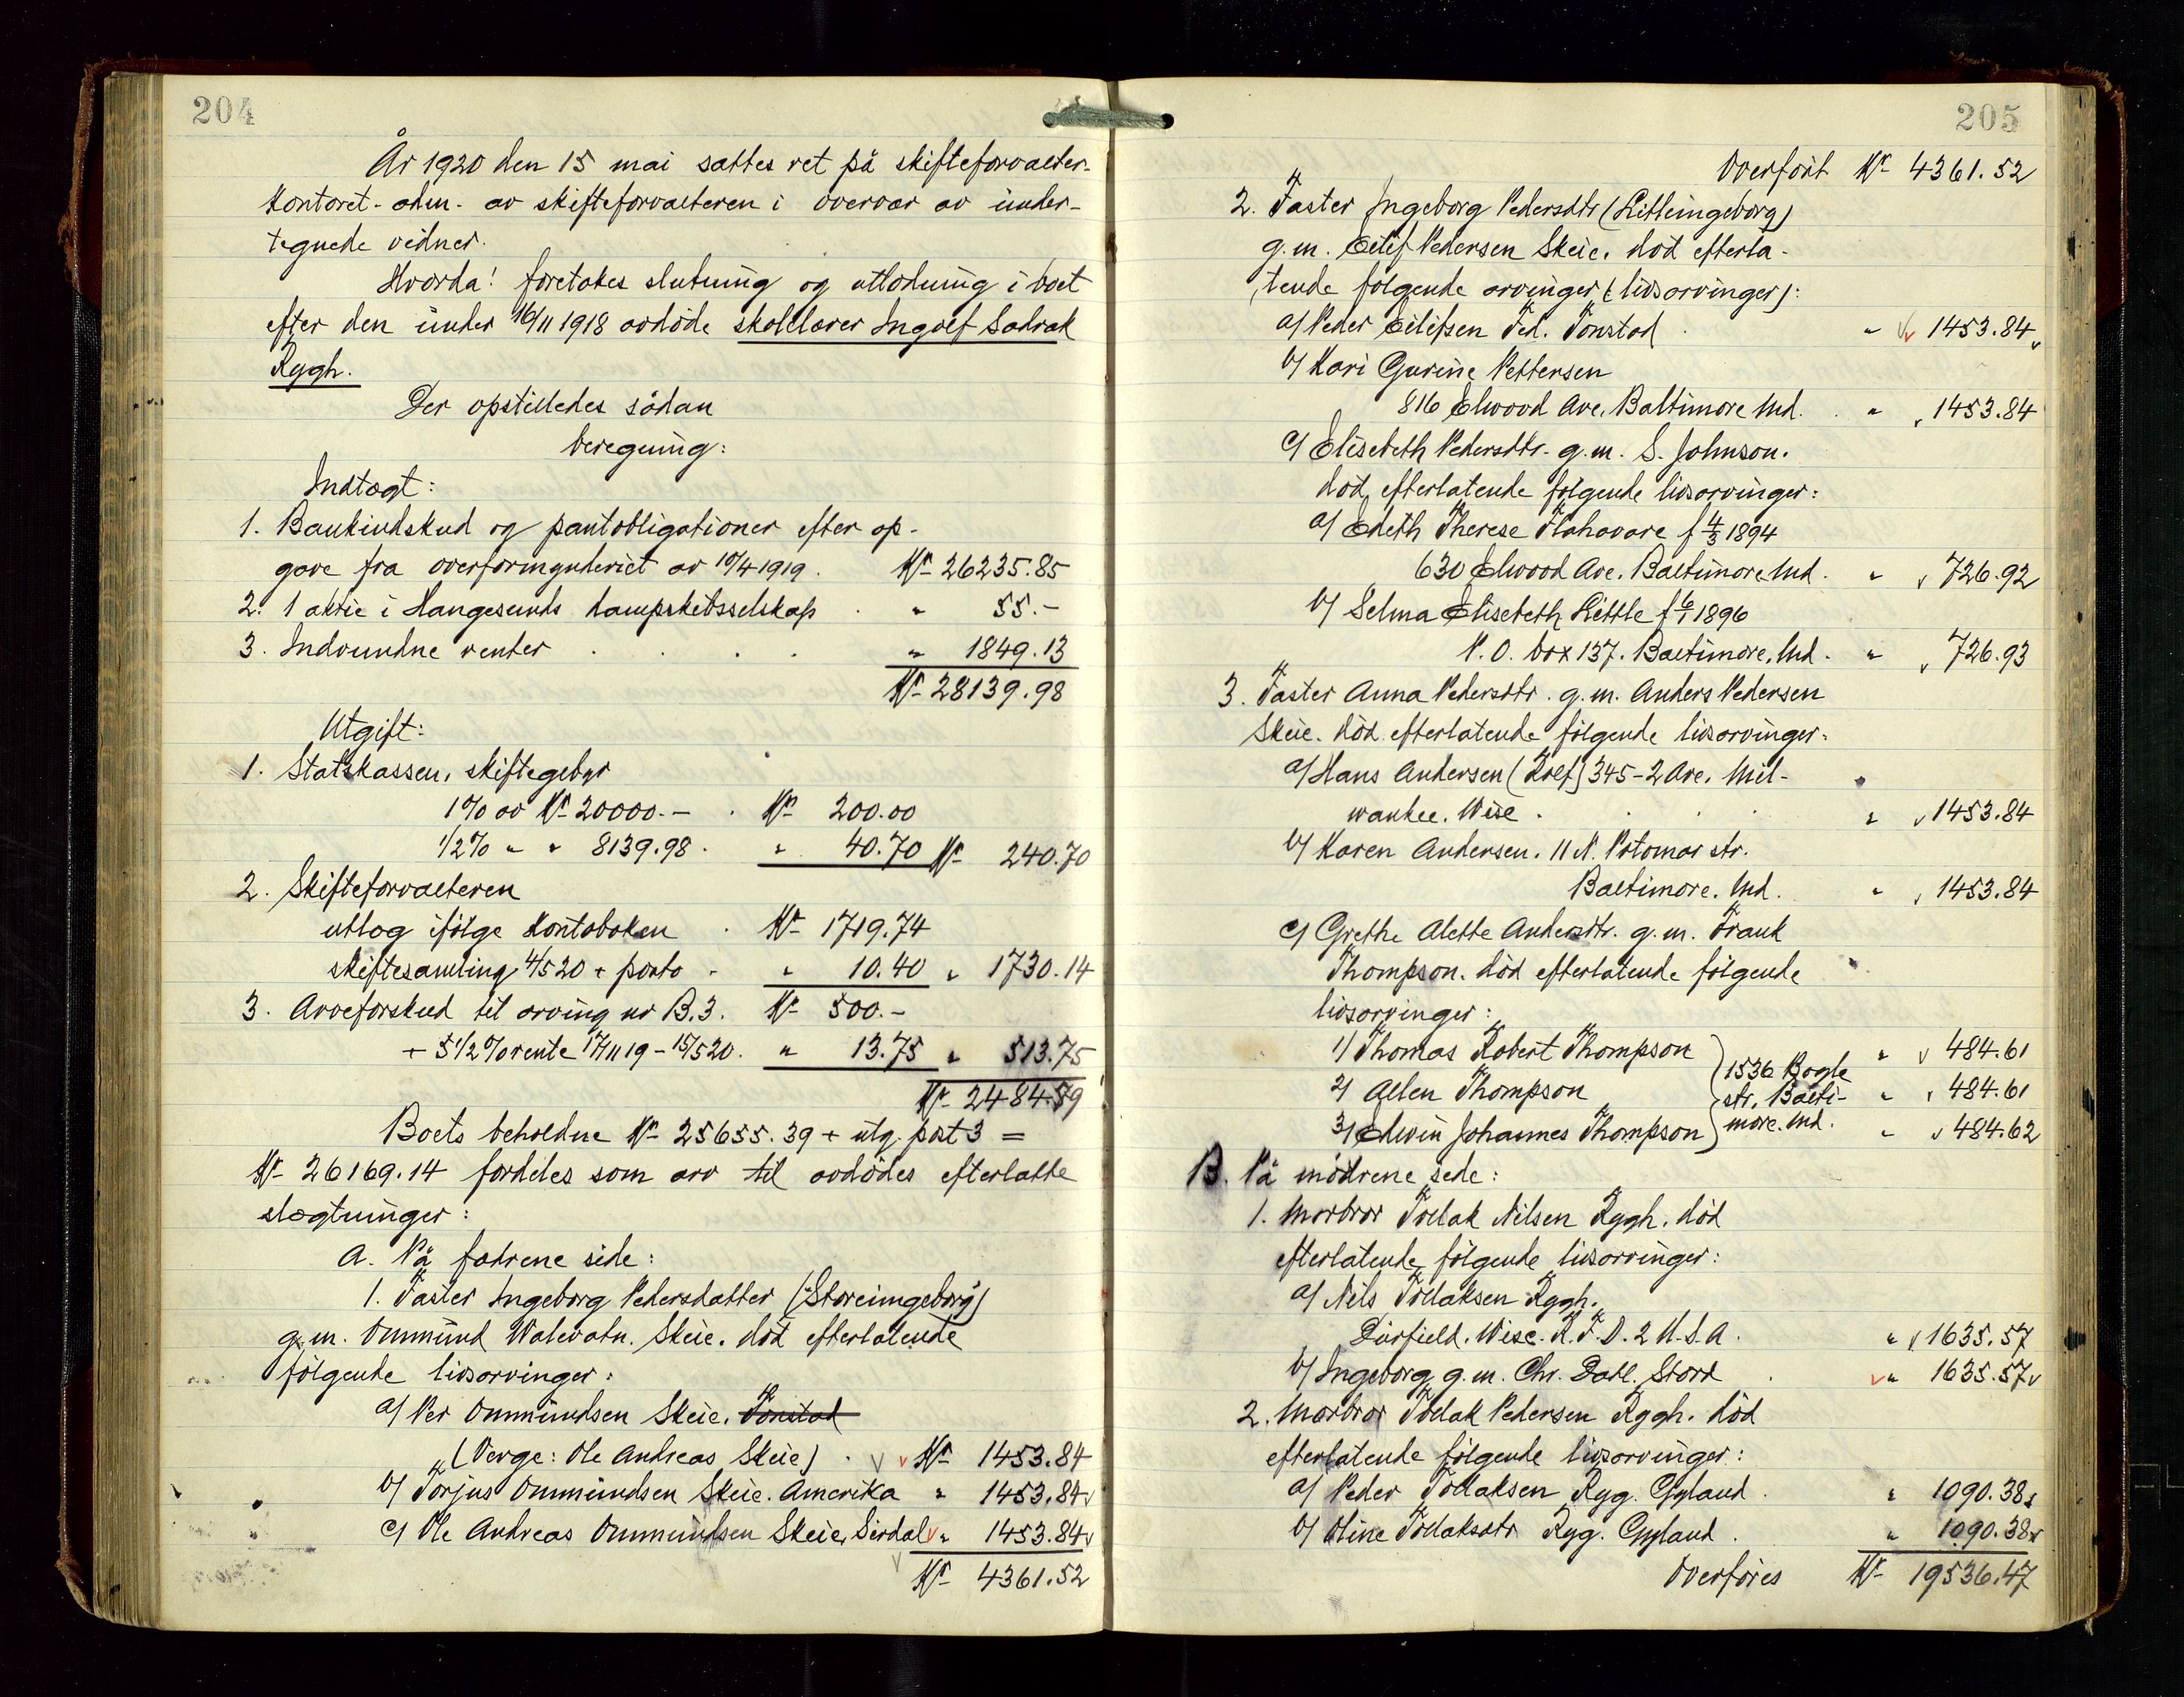 204
År 1920 den 15 mai sattes ret på skifteforvalter-
kontoret - adm. av skifteforvalteren i overvær av under-
tegnede vidner.
Hvorda! foretokes slutning og utlodning i boet
efter den under 16/11 1918 avdøde skolelærer Ingolf Sadrak
Rygh.
Der opstilledes sådan
beregning:
Indtægt:
1. Bankindskud og pantobligationer efter op-
gave fra overformynderiet av 10/4 1919. Kr 26235.85
2. 1 aktie i Haugesunds dampskibsselskap . " 55.-
3. Indvundne renter . . . . " 1849.13
Kr 28139.98
Utgift:
1. Statskassen, skiftegebyr
1% av Kr 20000.- . Kr 200.00
1/2% " " 8139.98 . " 40.70 Kr 240.70
2. Skifteforvalteren
utlæg ifølge kontoboken . Kr 1719.74
skiftesamling 4/5 20 + porto . " 10.40 " 1730.14
3. Arveforskud til arving nr B.3. Kr 500.-
+ 5 1/2% rente 17/11 19 - 15/5 20. " 13.75 " 513.75
Kr 2484.59
Boets beholdne Kr 25655.39 + utg. post 3 =
Kr 26169.14 fordeles som arv til avdødes efterlatte
slægtninger:
A. På fædrene side:
1. Faster Ingeborg Pedersdatter (Storeingeborg)
g.m. Ommund Valevatn. Skeie. død efterlatende
følgende livsarvinger:
a/ Per Ommundsen Skeie. Tonstad
(Verge: Ole Andreas Skeie) . Kr 1453.84
b/ Torjus Ommundsen Skeie. Amerika " 1453.84
c/ Ole Andreas Ommundsen Skeie, Sirdal " 1453.84
Kr 4361.52
205
Overført Kr 4361.52
2. Faster Ingeborg Pedersdtr (Litleingeborg)
g.m. Eilif Pedersen Skeie. død efterla-
tende følgende arvinger (livsarvinger):
a/ Peder Eilifsen Fed. Tonstad . " 1453.84
b/ Kari Gurine Pettersen
816 Elwood Ave. Baltimore Md. . " 1453.84
c/ Elisebeth Pedersdtr. g.m. S. Johnson.
død, efterlatende følgende livsarvinger:
a/ Edeth Therese Flahavare f 4/3 1894
630 Elwood Ave. Baltimore Md. " 726.92
b/ Selma Elisebeth Little f 6/1 1896
P.O. box 137. Baltimore, Md. " 726.93
3. Faster Anna Pedersdtr. g.m. Anders Pedersen
Skeie. død efterlatende følgende livsarvinger:
a/ Hans Andersen (Rolf) 345-2 Ave. Mil-
waukee. Wise . . . " 1453.84
b/ Karen Andersen. 11 N. Potomar str.
Baltimore. Md. " 1453.84
c/ Grethe Alette Andersdtr. g.m. Frank
Thompson. død efterlatende følgende
livsarvinger:
1/ Thomas Robert Thompson } 1536 Bogle " 484.61
2/ Allen Thompson str. Balti- " 484.61
3/ Edwin Johannes Thompson more. Md. " 484.62
B. På mødrene side:
1. Morbror Tollak Nilsen Rygh. død
efterlatende følgende livsarvinger:
a/ Nils Tollaksen Rygh.
Durfield. Wisc. R.F.D. 2 U.S.A. " 1635.57
b/ Ingeborg g.m. Chr. Dahl. Stord . " 1635.57
2. Morbror Tollak Pedersen Rygh. død
efterlatende følgende livsarvinger:
a/ Peder Tollaksen Ryg. Gyland . " 1090.38
b/ Oline Tollaksdtr Ryg. Gyland . " 1090.38
Overføres Kr 19536.47